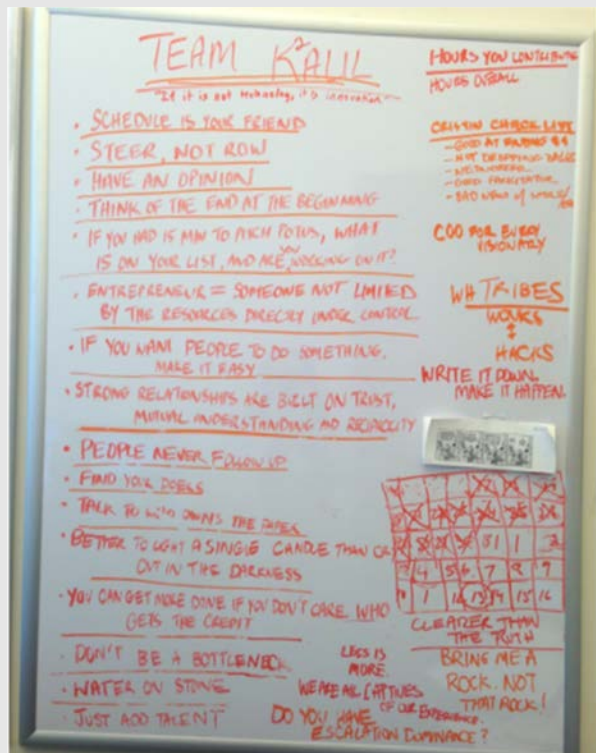 TEAM K²ALIL
"If it is not technology, it is innovation"
• SCHEDULE IS YOUR FRIEND
• STEER, NOT ROW
• HAVE AN OPINION
• THINK OF THE END AT THE BEGINNING
• IF YOU HAD 15 MIN TO PITCH POTUS, WHAT
IS ON YOUR LIST, AND ARE YOU WORKING ON IT?
• ENTREPRENEUR = SOMEONE NOT LIMITED
BY THE RESOURCES DIRECTLY UNDER CONTROL
• IF YOU WANT PEOPLE TO DO SOMETHING,
MAKE IT EASY
• STRONG RELATIONSHIPS ARE BUILT ON TRUST,
MUTUAL UNDERSTANDING AND RECIPROCITY
• PEOPLE NEVER FOLLOW UP
• FIND YOUR DOERS
• TALK TO WHO OWNS THE PAPER
• BETTER TO LIGHT A SINGLE CANDLE THAN
OUT IN THE DARKNESS
• YOU CAN GET MORE DONE IF YOU DON'T CARE WHO
GETS THE CREDIT
• DON'T BE A BOTTLENECK
• WATER ON STONE
• JUST ADD TALENT
HOURS YOU CONTRIBUTE
HOURS OVERALL
CRISTIN CHECK LIST
- GOOD AT FINDING $$
- NOT DROPPING BALLS
- NETWORKER
- GOOD FACILITATOR
- BAD NEWS
COO FOR EVERY
VISIONARY
WH TRIBES
WONKS
HACKS
WRITE IT DOWN,
MAKE IT HAPPEN.
31 1 2
4 5 6 7 8 9
1 12 13 14 15 16
CLEARER THAN
THE TRUTH
LESS IS
MORE.
BRING ME A
ROCK. NOT
THAT ROCK!
WE ARE ALL CAPTIVES
OF OUR EXPERIENCE.
DO YOU HAVE
ESCALATION DOMINANCE?